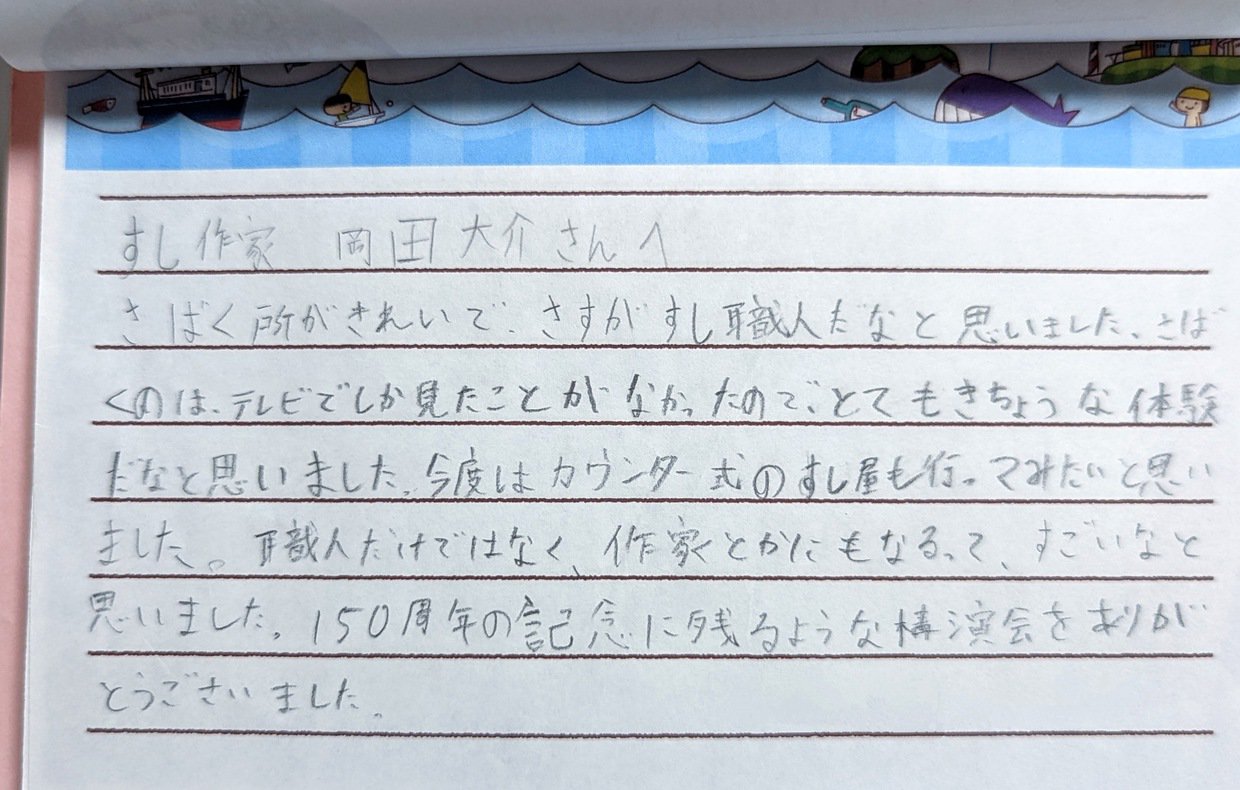 すし作家 岡田大介さんへ
さばく所がきれいで、さすがすし職人だなと思いました。さば
くのは、テレビでしか見たことがなかったので、とてもきちょうな体験
だなと思いました。今度はカウンター式のすし屋も行ってみたいと思い
ました。職人だけではなく、作家とかにもなるって、すごいなと
思いました。150周年の記念に残るような構演会をありが
とうございました。